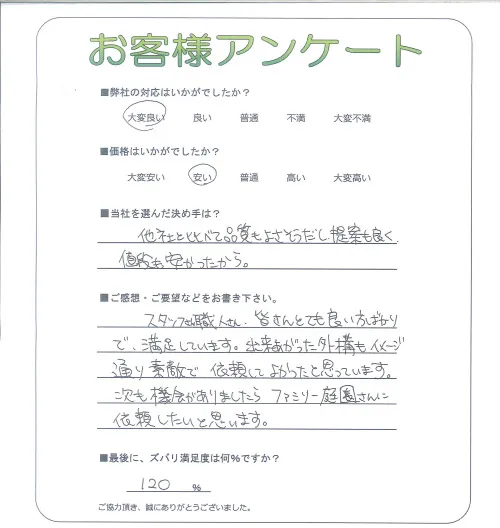 お客様アンケート
■弊社の対応はいかがでしたか？
大変良い 良い 普通 不満 大変不満
■価格はいかがでしたか？
大変安い 安い 普通 高い 大変高い
■当社を選んだ決め手は？
他社と比べて品質もよさそうだし提案も良く
値段も安かったから。
■ご感想・ご要望などをお書き下さい。
スタッフさん職人さん、皆さんとても良い方ばかり
で、満足しています。出来あがった外構もイメージ
通り素敵で依頼してよかったと思っています。
次も機会がありましたらファミリー庭園さんに
依頼したいと思います。
■最後に、ズバリ満足度は何%ですか？
120 %
ご協力頂き、誠にありがとうございました。